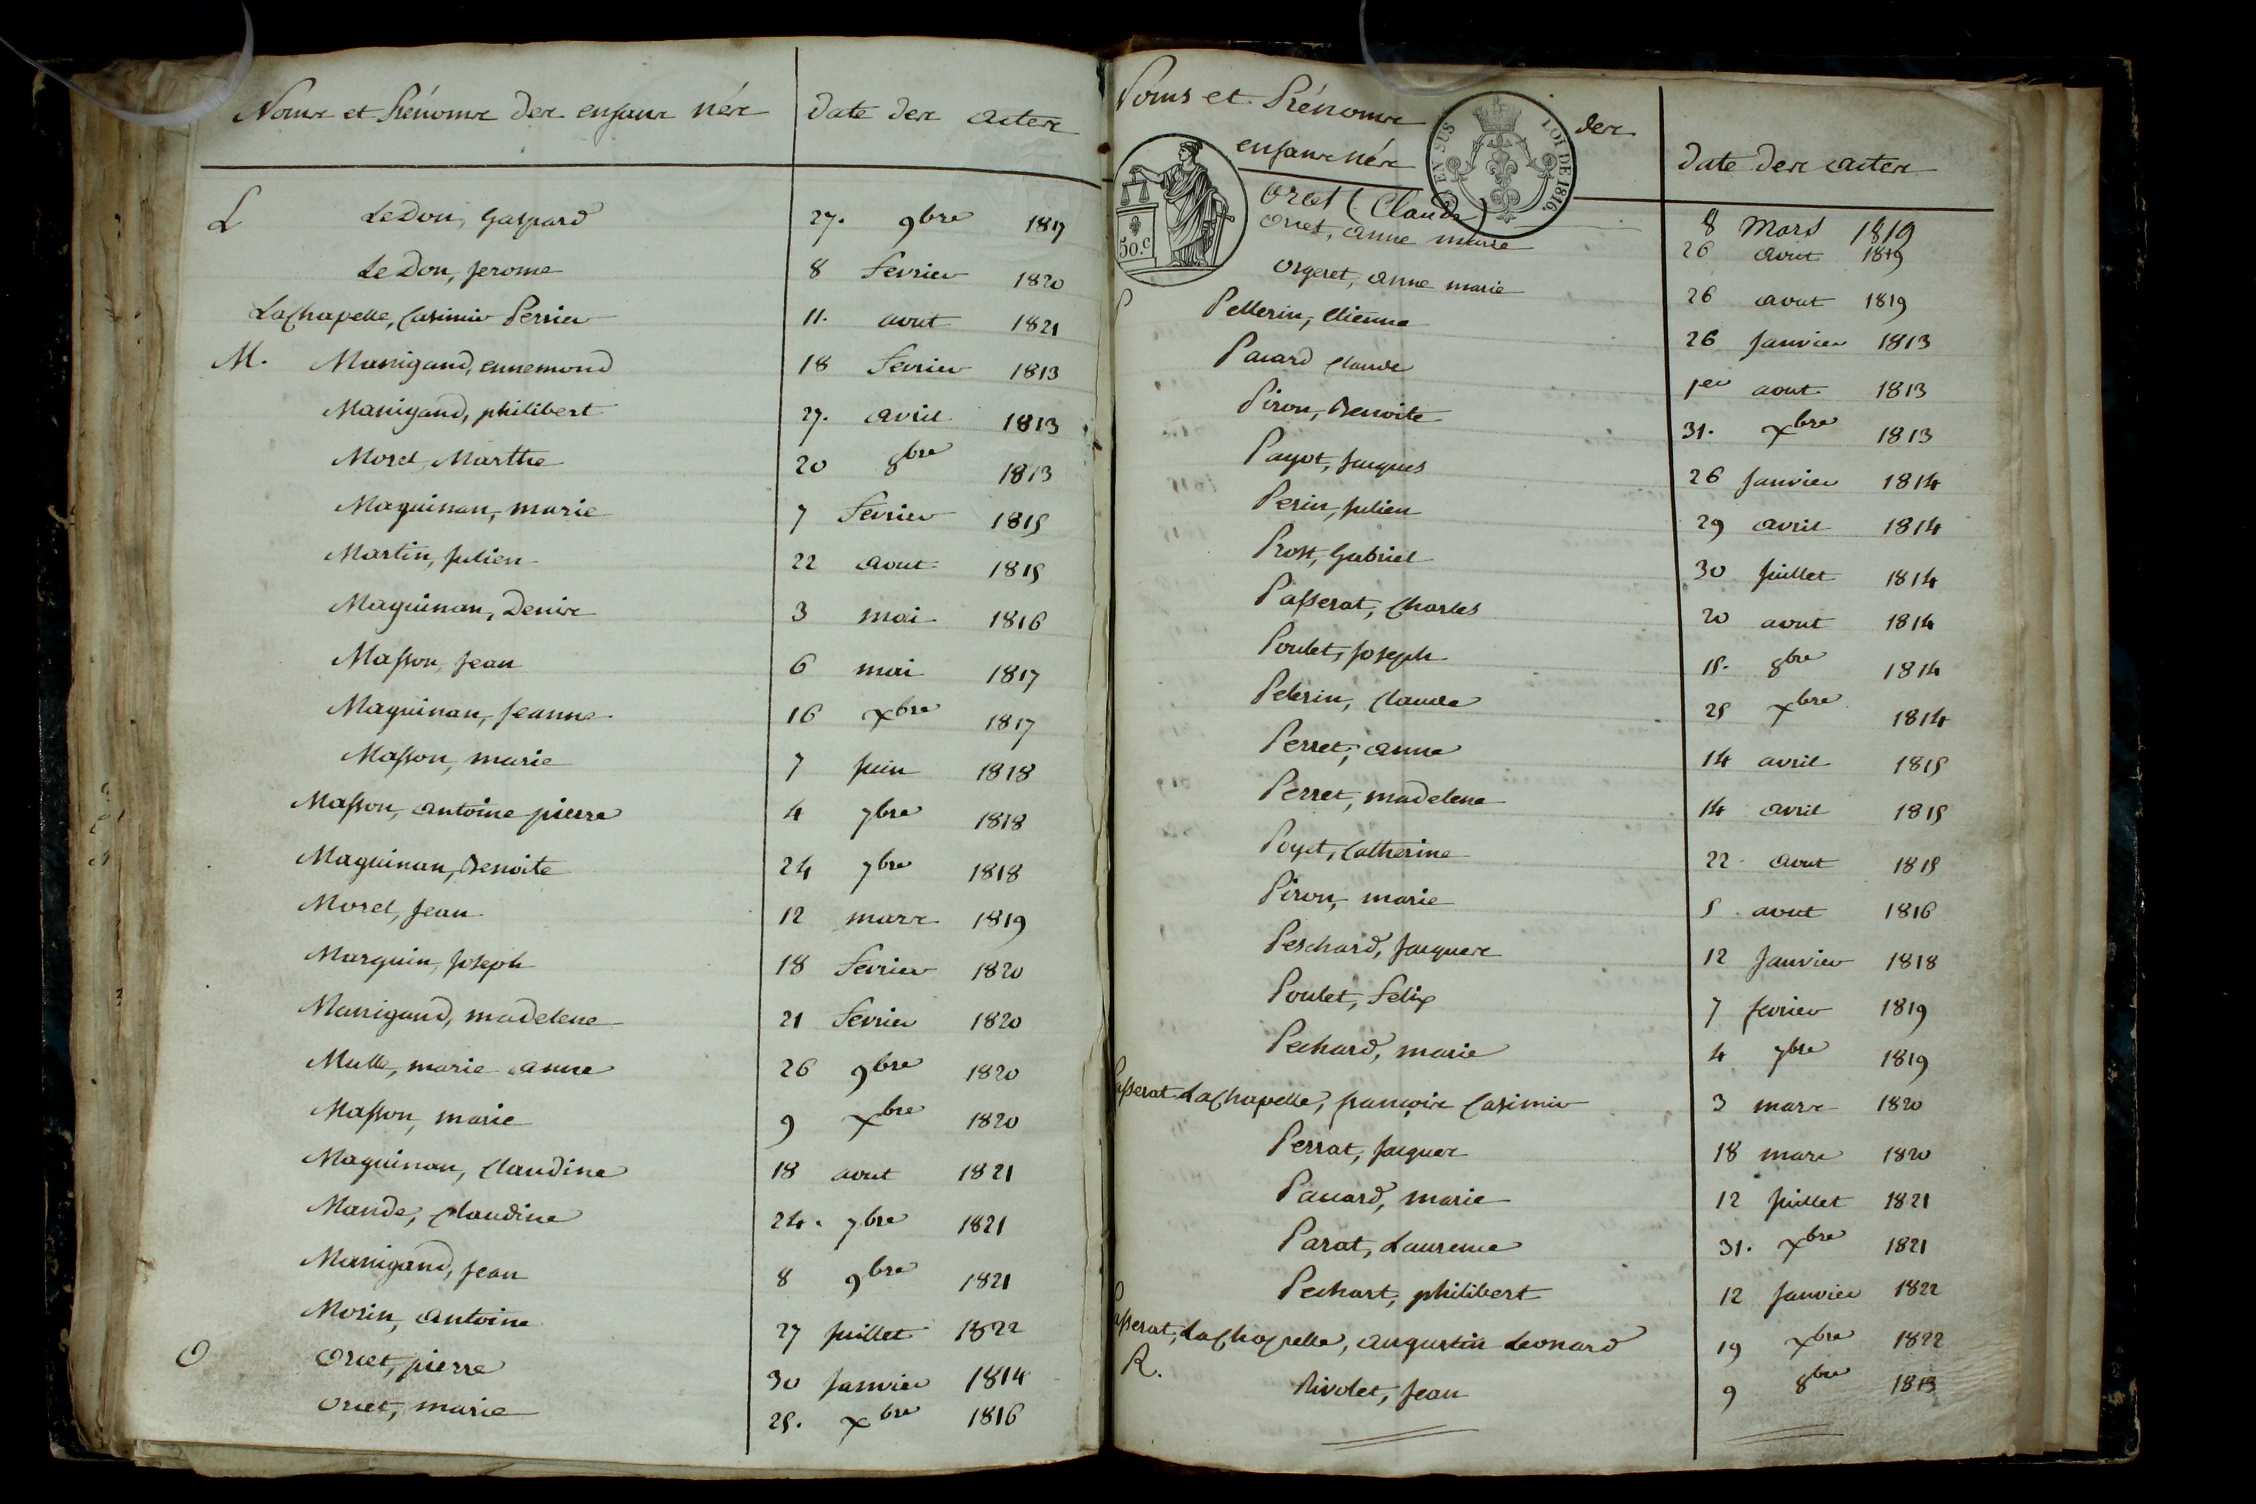 Noms et Prénoms des enfans nés date des actes
L LeDon, Gaspard 27. 9bre 1819
LeDon, jerome 8 fevrier 1820
LaChapelle, Casimir Perrier 11. aout 1821
M. Manigand, ennemond 18 fevrier 1813
Manigand, philibert 27. avril 1813
Morel, Marthe 20 8bre 1813
Maguinan, marie 7 fevrier 1815
Martin, julien 22 aout 1815
Maguinan, Denise 3 mai 1816
Masson, jean 6 mai 1817
Maguinan, jeanne 16 Xbre 1817
Masson, marie 7 juin 1818
Masson, antoine pierre 4 7bre 1818
Maguinan, Benoite 24 7bre 1818
Morel, jean 12 mars 1819
Marguin, joseph 18 fevrier 1820
Manigand, madelene 21 fevrier 1820
marie anne 26 9bre 1820
Masson, marie 9 Xbre 1820
Maguinan, Claudine 18 aout 1821
Mande, Claudine 24. 7bre 1821
Manigand, jean 8 9bre 1821
Morin, antoine 27 juillet 1822
O Orcet, pierre 30 janvier 1814
Orcet, marie 25. Xbre 1816
Noms et Prénoms des
enfans nés date des actes
EN SUS LOI DE 1816.
50.c
Orcet (Claude) 8 Mars 1819
Orcet, anne marie 26 aout 1819
Orgeret, anne marie 26 aout 1819
P Pellerin, etienne 26 janvier 1813
Pacard Claude 1er aout 1813
Piron, Benoite 31. Xbre 1813
Payot, jacques 26 janvier 1814
Perin, julien 29 avril 1814
Prost, Gabriel 30 juillet 1814
Passerat, Charles 20 aout 1814
Poulet, joseph 15. 8bre 1814
Pelerin, Claude 25 Xbre 1814
Perret, anne 14 avril 1815
Perret, madelene 14 avril 1815
Poyet, Catherine 22 aout 1815
Piron, marie 5 aout 1816
Peschard, jacques 12 janvier 1818
Poulet, felix 7 fevrier 1819
Pechard, marie 4 7bre 1819
Passerat LaChapelle, françois Casimir 3 mars 1820
Perrat, jacques 18 mars 1820
Pacard, marie 12 juillet 1821
Parat, Laurence 31. Xbre 1821
Pechart, philibert 12 janvier 1822
Passerat, LaChapelle, augustin Leonard 19 Xbre 1822
R. Rivolet, jean 9 8bre 1813